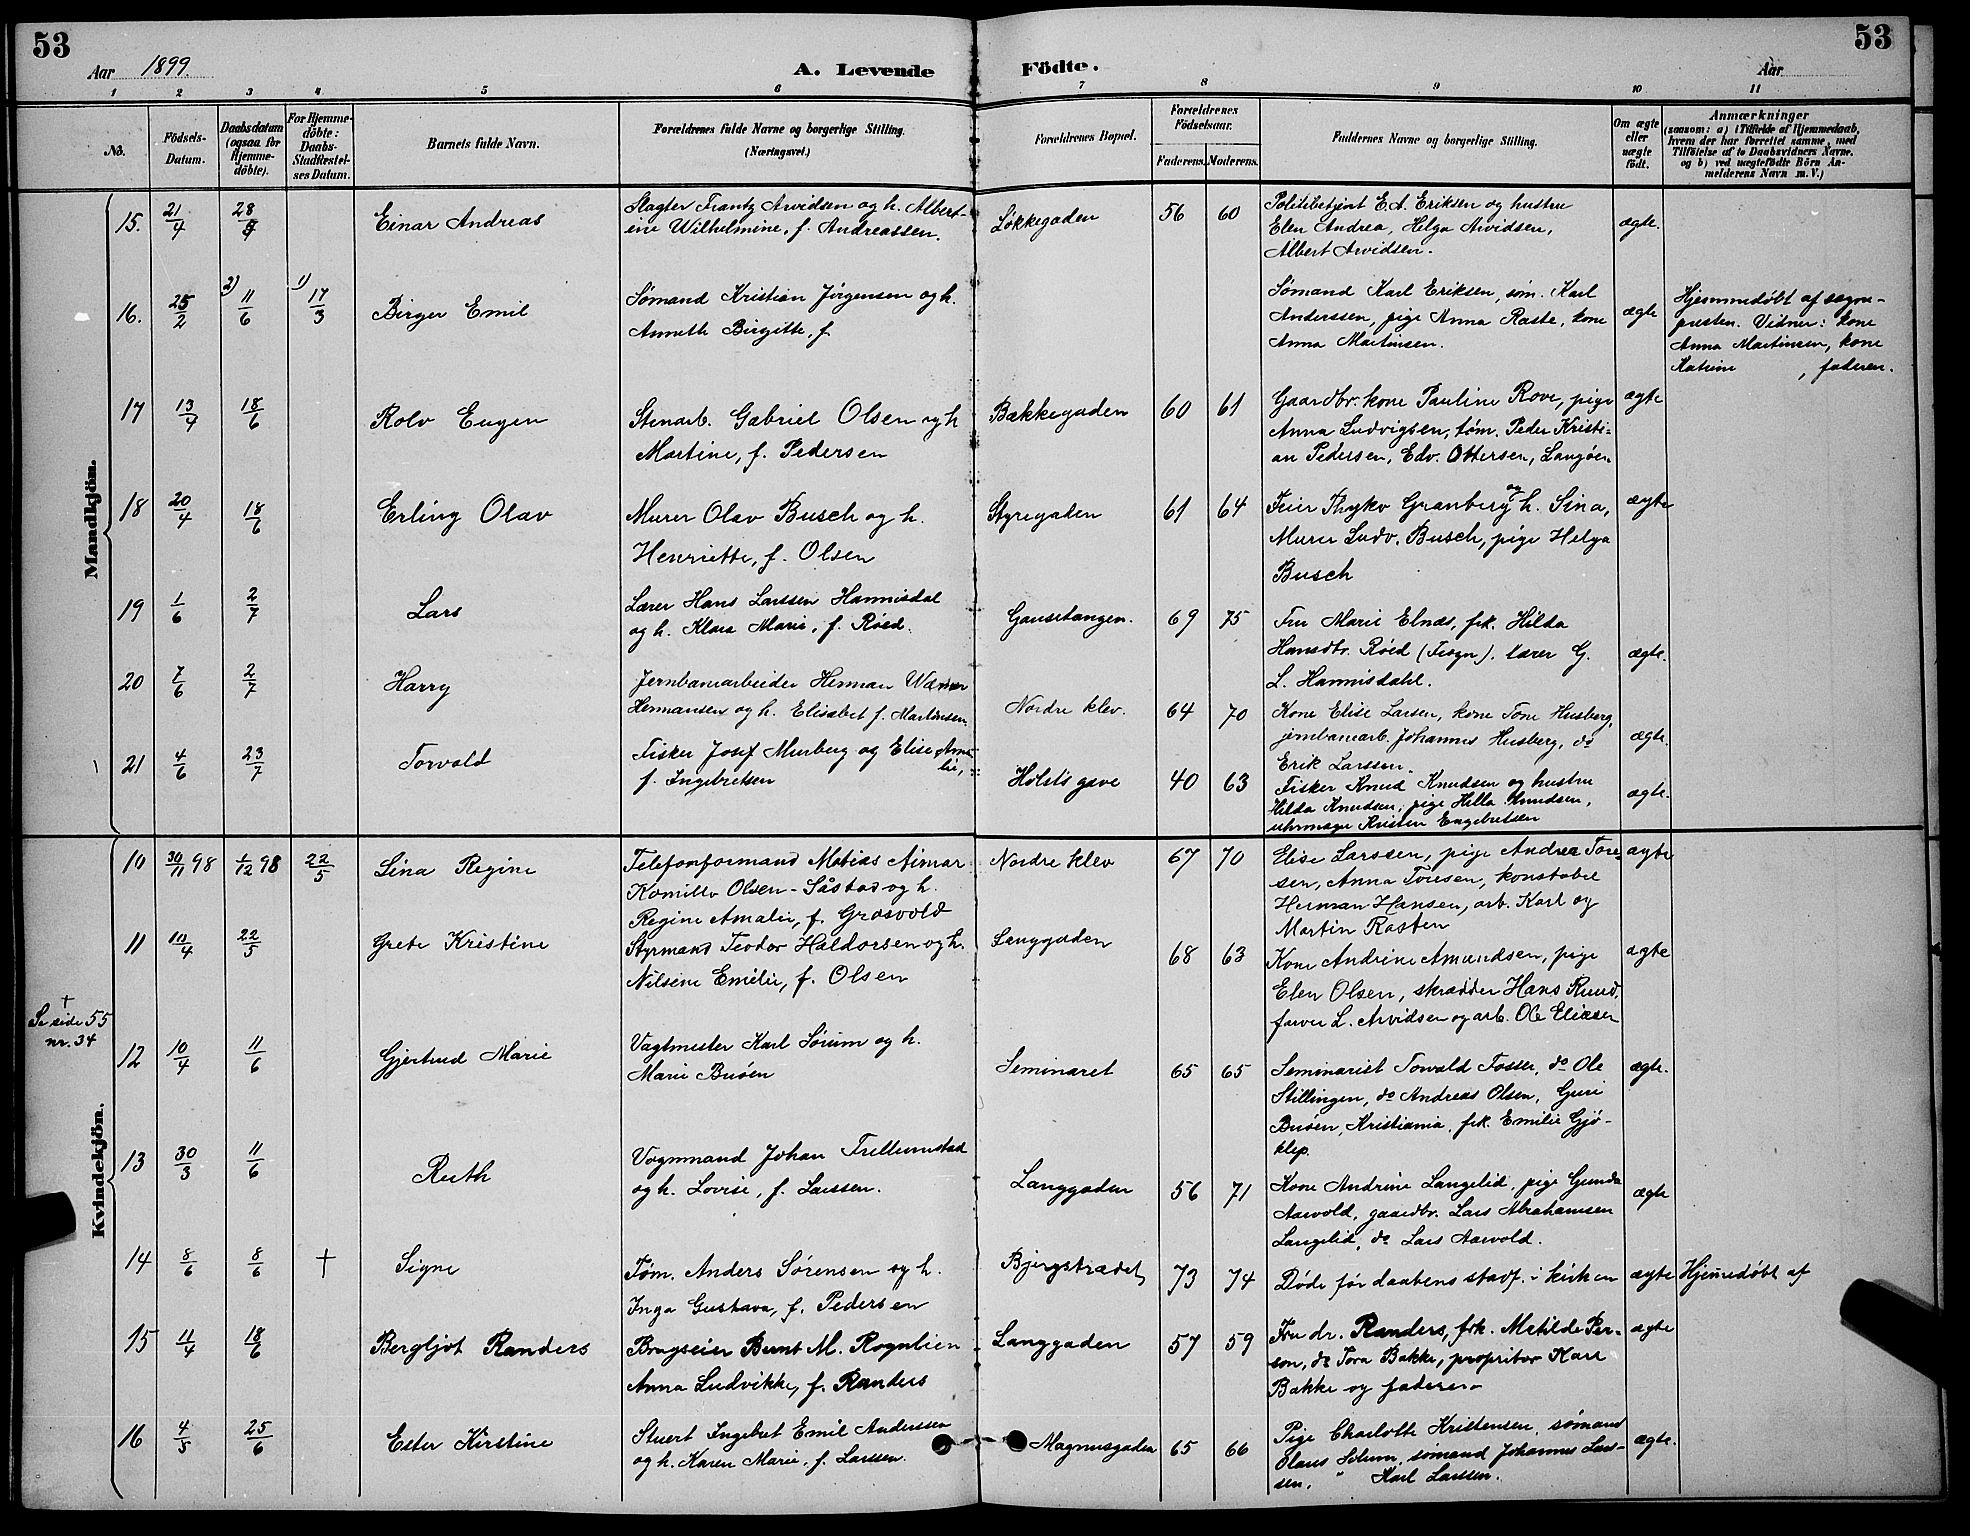 53
53
Aar 1899.
A. Levende
Födte.
Aar
1 2 3 4 5 6 7 8 9 10 11
No.
Födsels-
Datum.
Daabsdatum
(ogsaa for
Hjemme-
döbte).
For Hjemme-
döbte:
Daabs-
Stadfæstel-
ses Datum.
Barnets fulde Navn.
Forældrenes fulde Navne og borgerlige Stilling.
(Næringsvei.)
Forældrenes Bopæl.
Forældrenes
Födselsaar.
Faderens. Moderens.
Faddernes Navne og borgerlige Stilling.
Om ægte
eller
uægte
födt.
Anmærkninger
(saasom: a) i Tilfælde af Hjemmedaab,
hvem der har forrettet samme, med
Tilföielse af to Daabsvidners Navne.
og b) ved uægtefödte Börn An-
melderens Navn m. V.)
Mandkjön.
15. 21/4 28/5 Einar Andreas
Slagter Frantz Arvidsen og h. Albert-
ine Wilhelmine, f. Andreassen.
Løkkegaden 56 60
Politibetjent E. A. Eriksen og hustru
Elen Andrea, Helga Arvidsen,
Albert Arvidsen.
ægte.
16. 25/2 2) 11/6 1) 17/3 Birger Emil
Sømand Kristian Jørgensen og h.
Anneth Birgitte, f.
Sømand Karl Eriksen, søm. Karl
Anderssen, pige Anna Raste, kone
Anna Martinsen.
ægte
Hjemmedøbt af sogne-
præsten. Vidner: kone
Anna Martinsen, kone
Katrine , faderen.
17 13/4 18/6 Rolv Eugen
Stenarb. Gabriel Olsen og h
Martine, f. Pedersen
Bækkegaden 60 61
Gaardbr. kone Pauline Rove, pige
Anna Ludvigsen, tøm. Peder Kristi-
an Pedersen, Edv. Ottersen, Langøen
ægte
18 20/4 18/6 Erling Olav
Murer Olav Busch og h.
Henriette, f. Olsen
Styregaden 61 64
Feier Thykv Granberg og h. Sina,
Murer Ludv. Busch, pige Helga
Busch
ægte
19 1/6 2/7 Lars
Lærer Hans Larssen Hannisdal
og h. Klara Marie, f. Røed.
Gausetangen. 69 75
Fru Marie Elnæs, frk. Hilda
Hansdtr. Røed (Tisgn). lærer G.
L. Hannisdahl.
ægte.
20 7/6 2/7 Harry
Jernbanearbeider Herman Werner
Hermansen og h. Elisabet f. Martinsen
Nordre klev. 64 70
Kone Elise Larsen, kone Tone Husberg,
jernbanearb. Johannes Husberg, do
Erik Larssen.
ægte.
21 4/6 23/7 Torvald
Fisker Josef Murberg og Elise Ama-
lie, f. Ingebretsen
Holsts gave 40 63
Fisker Knud Knudsen og hustru
Hilda Knudsen, pige Hilla Knudsen,
uhrmager Kristen Engebretsen
ægte.
Kvindekjön.
10 30/11 98 1/12 98 22/5 Lina Regine
Telefonformand Matias Aimar
Komillo Olsen-Såstad og h.
Regine Amalie, f. Grasvold
Nordre klev 67 70
Elise Larssen, pige Andrea Tore-
sen, Anna Toresen, konstabel
Herman Hansen, arb. Karl og
Martin Rasten
ægte
11 10/4 22/5 Grete Kristine
Styrmand Teodor Haldorsen og h.
Nilsene Emilie, f. Olsen
Langgaden 68 63
Kone Andrine Amundsen, pige
Elen Olsen, skrædder Hans Ruud,
farver L. Arvidsen og arb. Ole Eliasen
ægte
+
Se side 55
nr. 34
12 10/4 11/6 Gjertrud Marie
Vagtmester Karl Sørum og h.
Marie Buøen
Seminaret 65 65
Seminarist Torvald Tosser, do Ole
Stillingen, do Andreas Olsen, Guri
Buøen, Kristiania, frk. Emilie Gjö-
klep.
ægte.
13 30/3 11/6 Ruth
Vognmand Johan Trellumstad
og h. Lovise, f. Larssen.
Langgaden 56 71
Kone Andrine Langelid, pige Gunda
Aarvold, gaardbr. Lars Abrahamsen
Langelid, do Lars Aarvold.
ægte
14 8/6 8/6 † Signe
Tøm. Anders Sørensen og h.
Inga Gustava, f. Pedersen
Bjergstrædet 73 74
Døde før daabens stadf. i kirken
ægte
Hjemedøbt af
15 11/4 18/6 Bergljot Randers
Brugseier Bernt M. Rognlien
Anna Ludvikke, f. Randers
Langgaden 57 59
Fru dr. Randers, frk. Matilde Per-
son, do Tora Bakke, propritær Karl
Bakke og faderen
ægte
16 4/5 25/6 Ester Kirstine
Stuert Ingebret Emil Anderssen
og h. Karen Marie, f. Larssen.
Magnusgaden 65 66
Pige Charlotte Kristensen, sømand
Olaus Solum, sømand Johannes Lars-
sen, " Karl Larssen.
ægte.